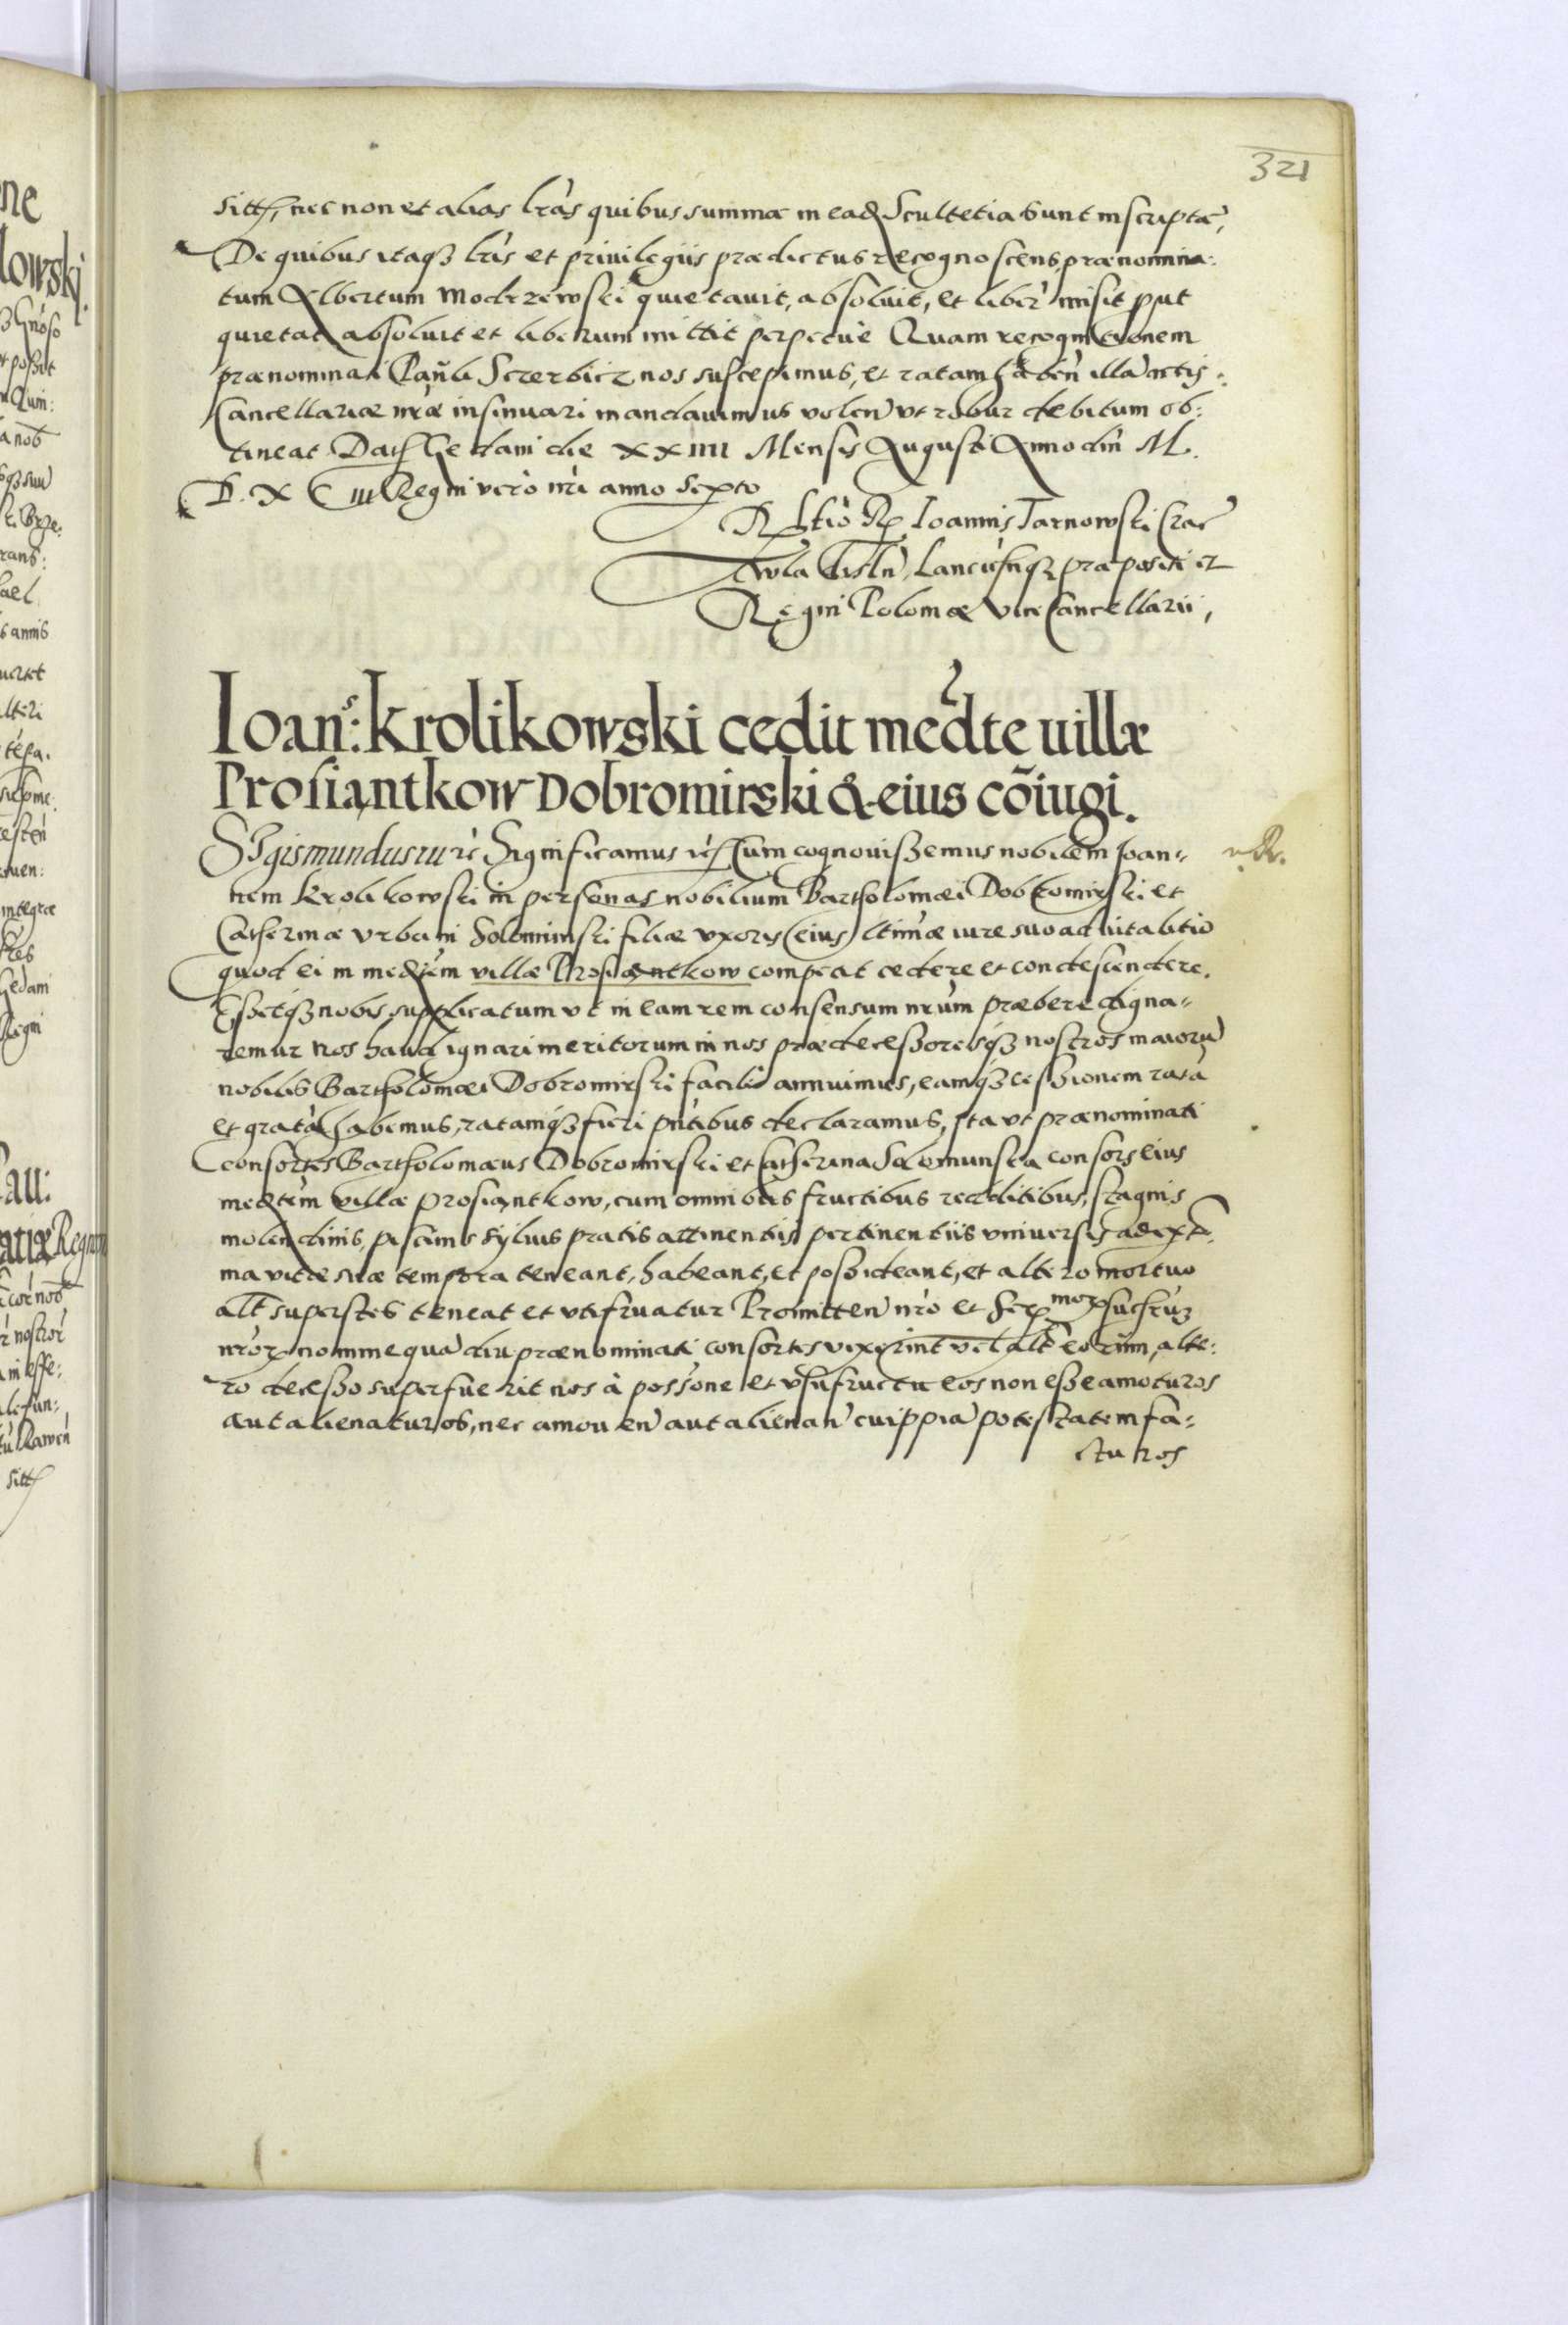 321
sittħ, nec non et alias lrãs quibus summæ in eađ Scultetia sunt inscriptæ,
De quibus itaqȝ lrĩs et priuilegiis prædictus recognoscens, prænomina:
tum Albertum Modrzewski quietauit, absoluit, et liberũ misit put
quietat absoluit et liberum mittit perpetuè Quam recognitionem
prænominati Pauli Sczerbicz nos suscepimus, et ratam habeñ illã actis
Cancellariæ nrãe insinuari mandauimus voleñ vt robur debitum ob:
tineat Datħ Gedani die XXIIII Mensis Augusti Anno dñi M.
D. X C III Regni verò nrĩ anno Sexto
Rłtiõ Rɖ Ioannis Tarnowski Crac̃
Wla disłñ, Lanciciñqȝ præpositi et
Regni Poloniæ Vice Cancellarii,
Ioañs: Krolikowski cedit medte uillæ
Prosiantkow Dobromirski & eius cõiugi.
SIgismundus iii rč Significamus rč Cum cognouissemus nobilem Ioan-
nem Krolikowski in personas nobilium Bartholomæi Dobromirski et
Catherinæ Vrbani Solomunski filiæ vxoris eius ltimæ iure suo aduitalitio
quod ei in medtem villæ Prosiantkow competat cedere et condescendere.
Essetqȝ nobis supplicatum vt in eam rem consensum nrũm præbere digna-
remur Nos haud ignari meritorum in nos prædecessoresqȝ nostros maiorũ
nobilis Bartholomæi Dobromirski facile annuimus, eamqȝ cessionem ratã
et gratã habemus, ratamqȝ fieri pñtibus declaramus, Ita vt prænominati
consortes Bartholomæus Dobromirski et Catherina Solomunska consors eius
medtem villæ Prosiantkow, cum omnibus fructibus redditibus, stagnis
molendinis, piscinis syluis pratis attinentiis pertinentiis vniuersis ad extre
ma vitæ suæ tempora teneant, habeant, et possideant, et altero mortuo
alt superstes teneat et vtifruatur Promitteñ nrõ et Sermoꝝ succrũȝ
nrõꝝ nomine quã diu prænominati consortes vixerint vel alt eorum, alte:
ro decesso superfuerit nos à possone et vsufructu eos non esse amoturos
aut alienaturos, nec amoueñ aut alienañ cuippiã potestatem fa-
cturos